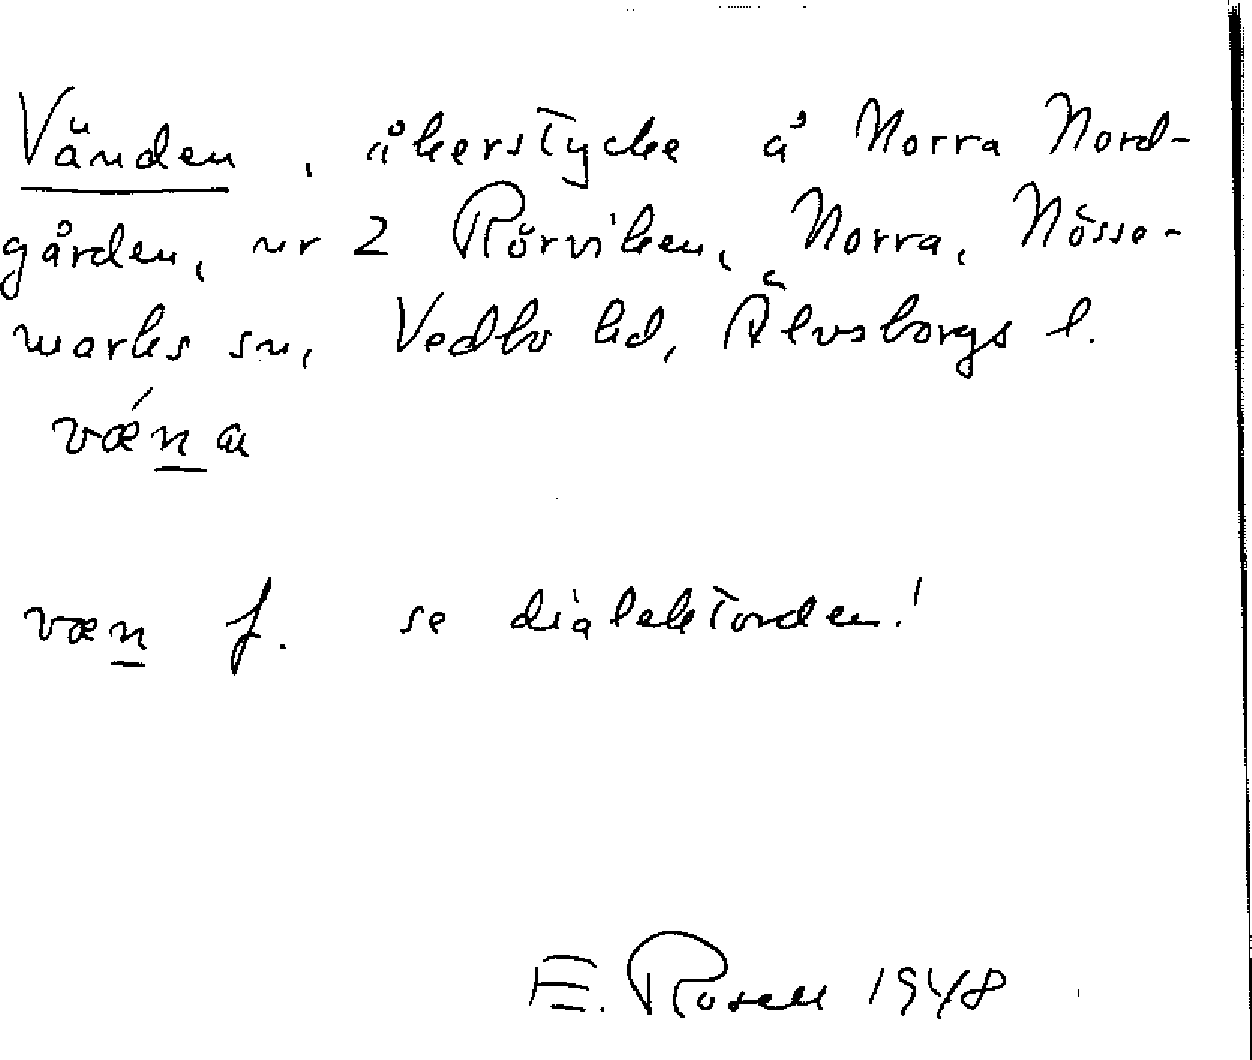 Vänden, åkerstycke å Norra Nord-
gården, nr 2 Rörviken, Norra, Nösse-
marks sn, Vedbo hd, Älvsborgs l.
vǽna
væn f. se dialektorden!
E. Rosell 1948